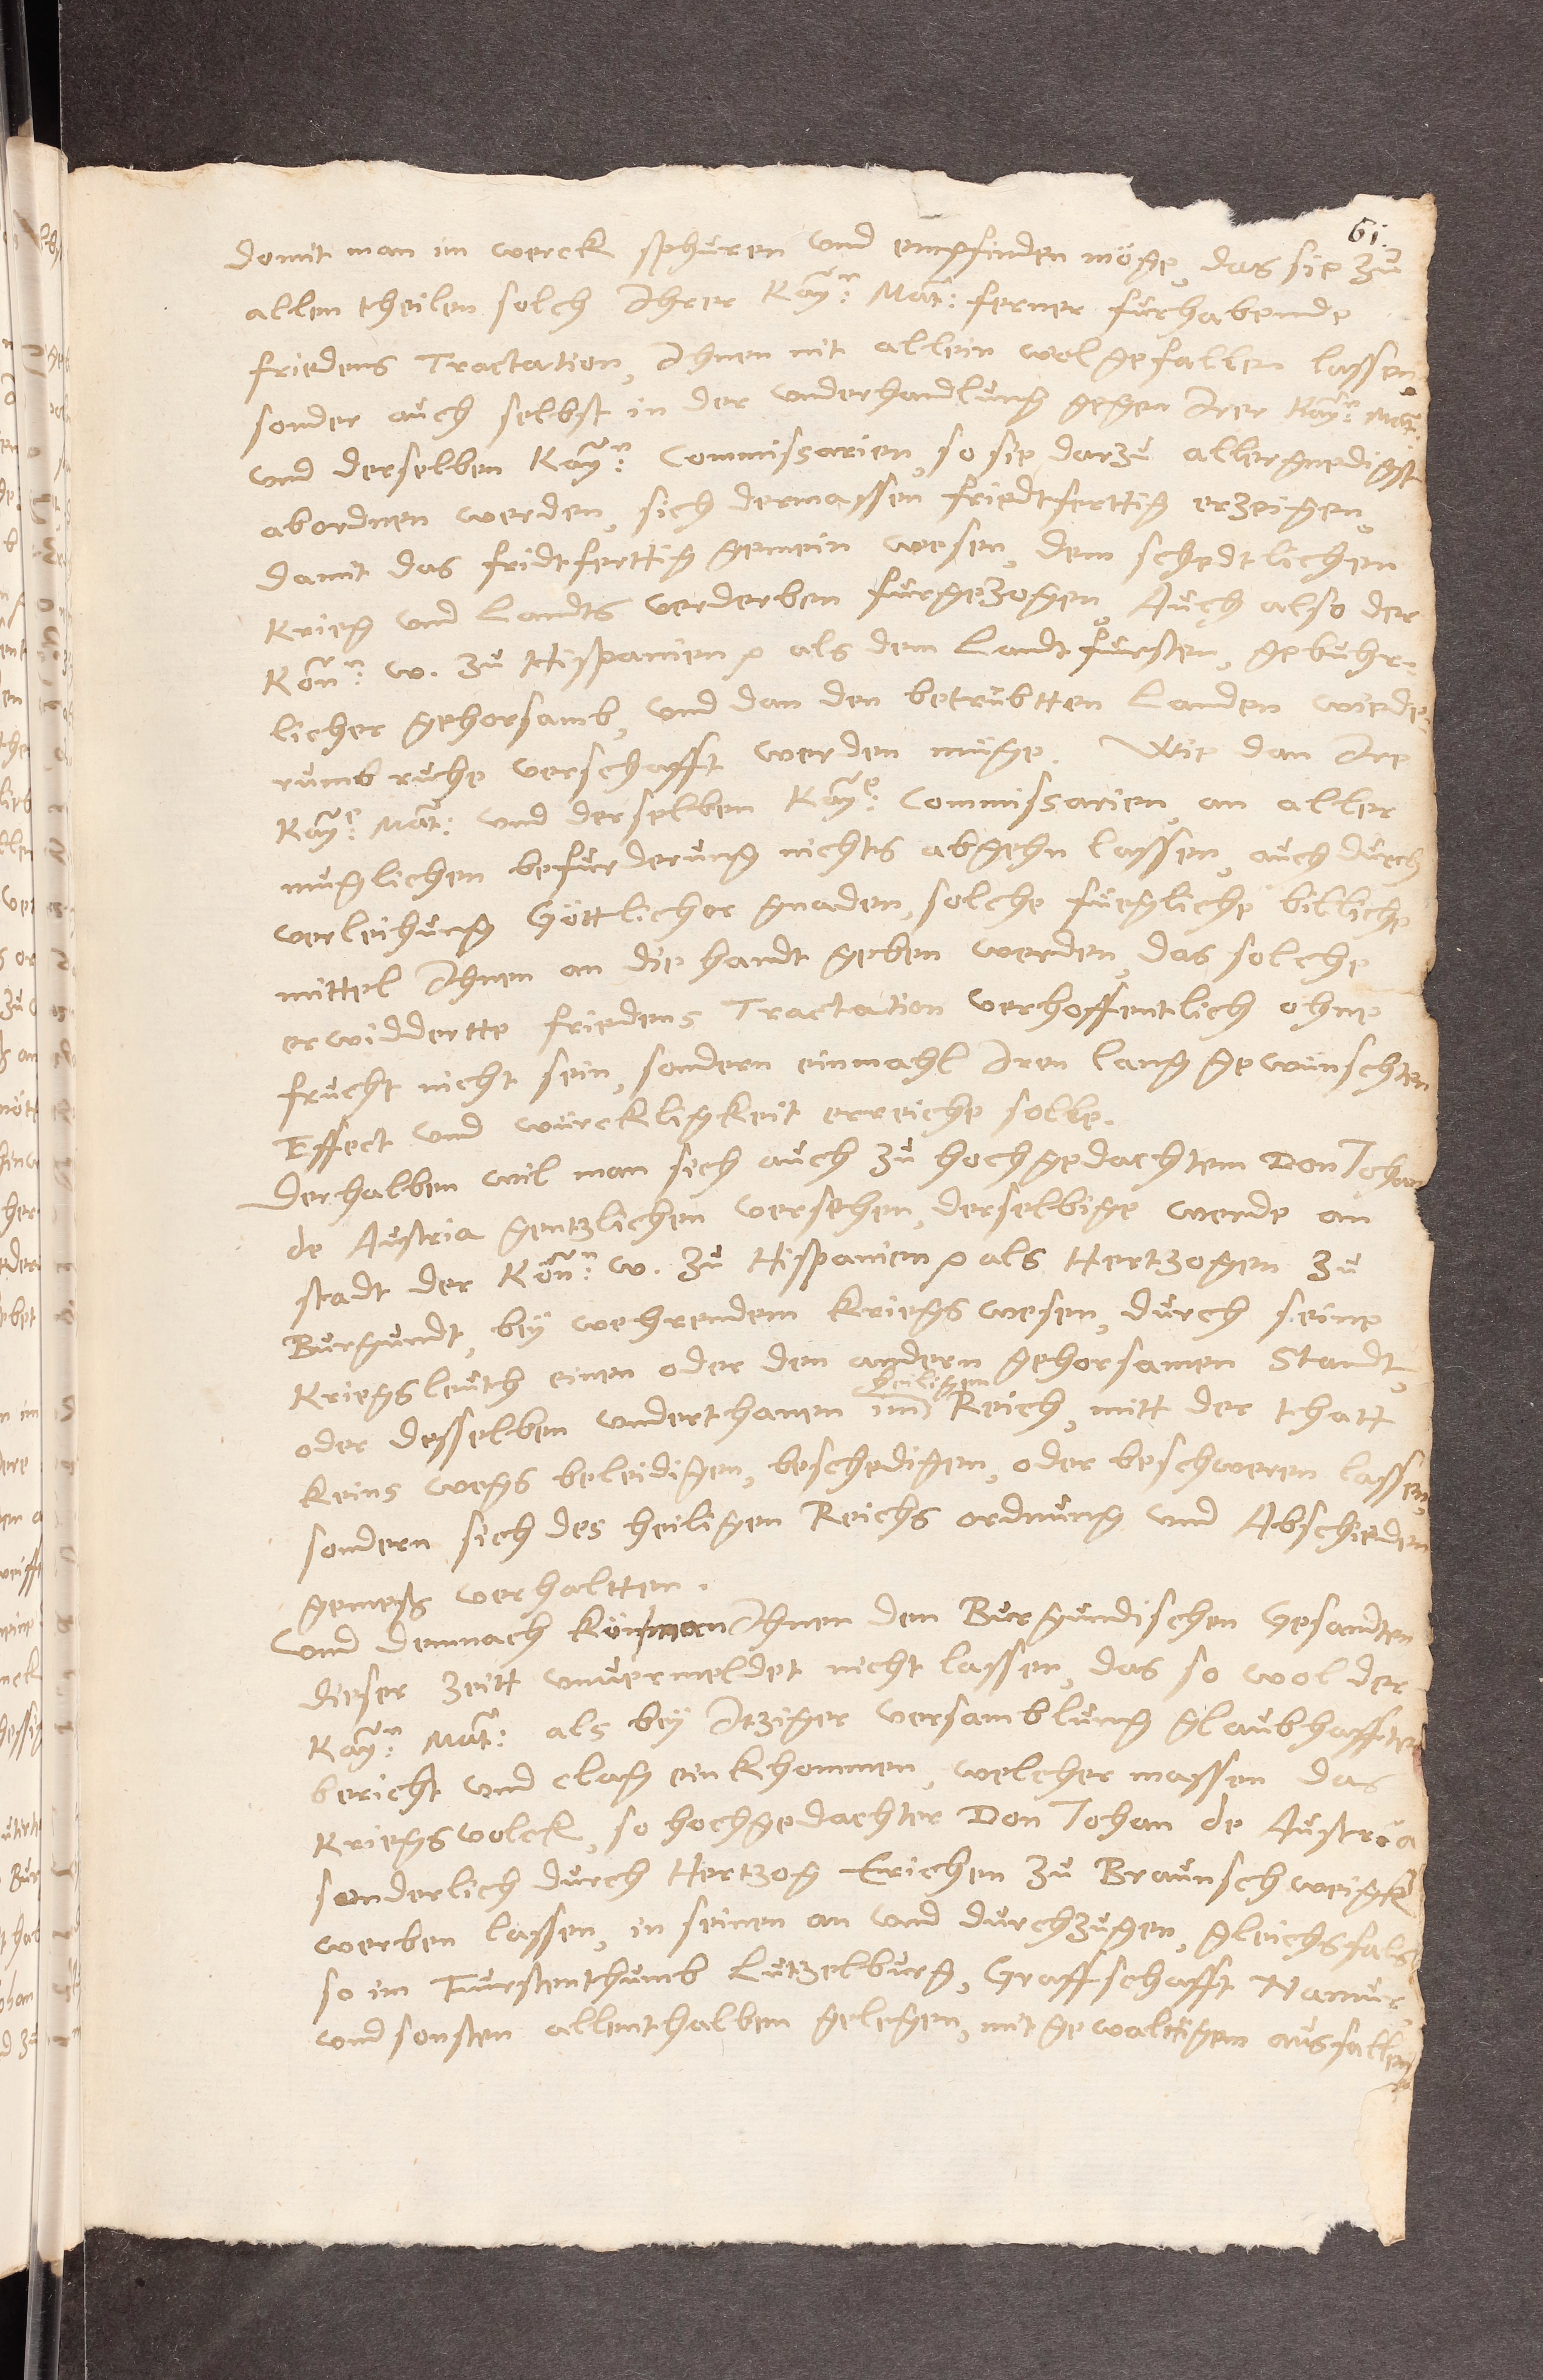 61.
domit man im werck sphuren und empfinden möge, das sie zu
allen theilen solch Ihrer Kay:n Mat: ferner furhabende
friedens Tractation, Ihnen nit allein wolgefallen lassen,
sonder auch selbst in der underhandlung gegen Irer Kay:n Mat:
und derselben Kay:n Commissarien, so sie darzu allergnedigst
abordnen werden, sich dermassen friedtferttig erzeigen,
damit das fridtferttig gemein wesen, dem schedtlichen
Krieg und Landts verderben furgezogen, Auch also der
Kön:n w. zu Hispanien als dem Landtfursten, gebuhr-
licher gehorsamb, und dan den betrubtten Landen wiede-
rumb ruhe verschafft werden müge. Wie dan Ire
Kay:e Mat: und derselben Kay:e Commissarien, an aller
muglichen befurderung nichts abgehn lassen, auch durch
verleihung Göttlicher gnaden, solche fuegliche billiche
mittel Ihnen an die handt geben werden, das solche
erwiddertte friedens Tractation verhoffentlich ohne
frucht nicht sein, sondern einmahl Iren lang gewünschten
Effect und würckligkeit erreiche solle.
Derhalben wil man sich auch zu hochgedachtem Don Johan
de Austria gentzlichen versehen, derselbige werde an
stadt der Kön:n w. zu Hispanien als Hertzogen zu
Burgundt, bey wehrendem Kriegswesen, durch seine
Kriegsleuth einen oder den andern gehorsamen Standt,
heiligen
oder desselben underthanen im Reich, mitt der thatt
keins wegs beleidigen, beschedigen, oder beschweren lassen,
sondern sich des heiligen Reichs ordnung und Abschieden
gemeß verhaltten.
Und demnach kön man Ihnen den Burgundischen Gesandten
dieser zeitt unvermeldet nicht lassen, das so wol der
Kay:n Mat: als bey Itziger versamblung glaubhaffter
bericht und clag einkhommen, welcher massen das
Kriegsvolck, so hochgedachter Don Johan de Austria
sonderlich durch Hertzog Erichen zu Braunschweigk
werben lassen, in seinen an und durchzugen, gleichsfals
so im Furstenthumb Lutzelburg, Graffschafft Namur,
und sonsten allenthalben gelegen, mit gewalttigem ausfallen